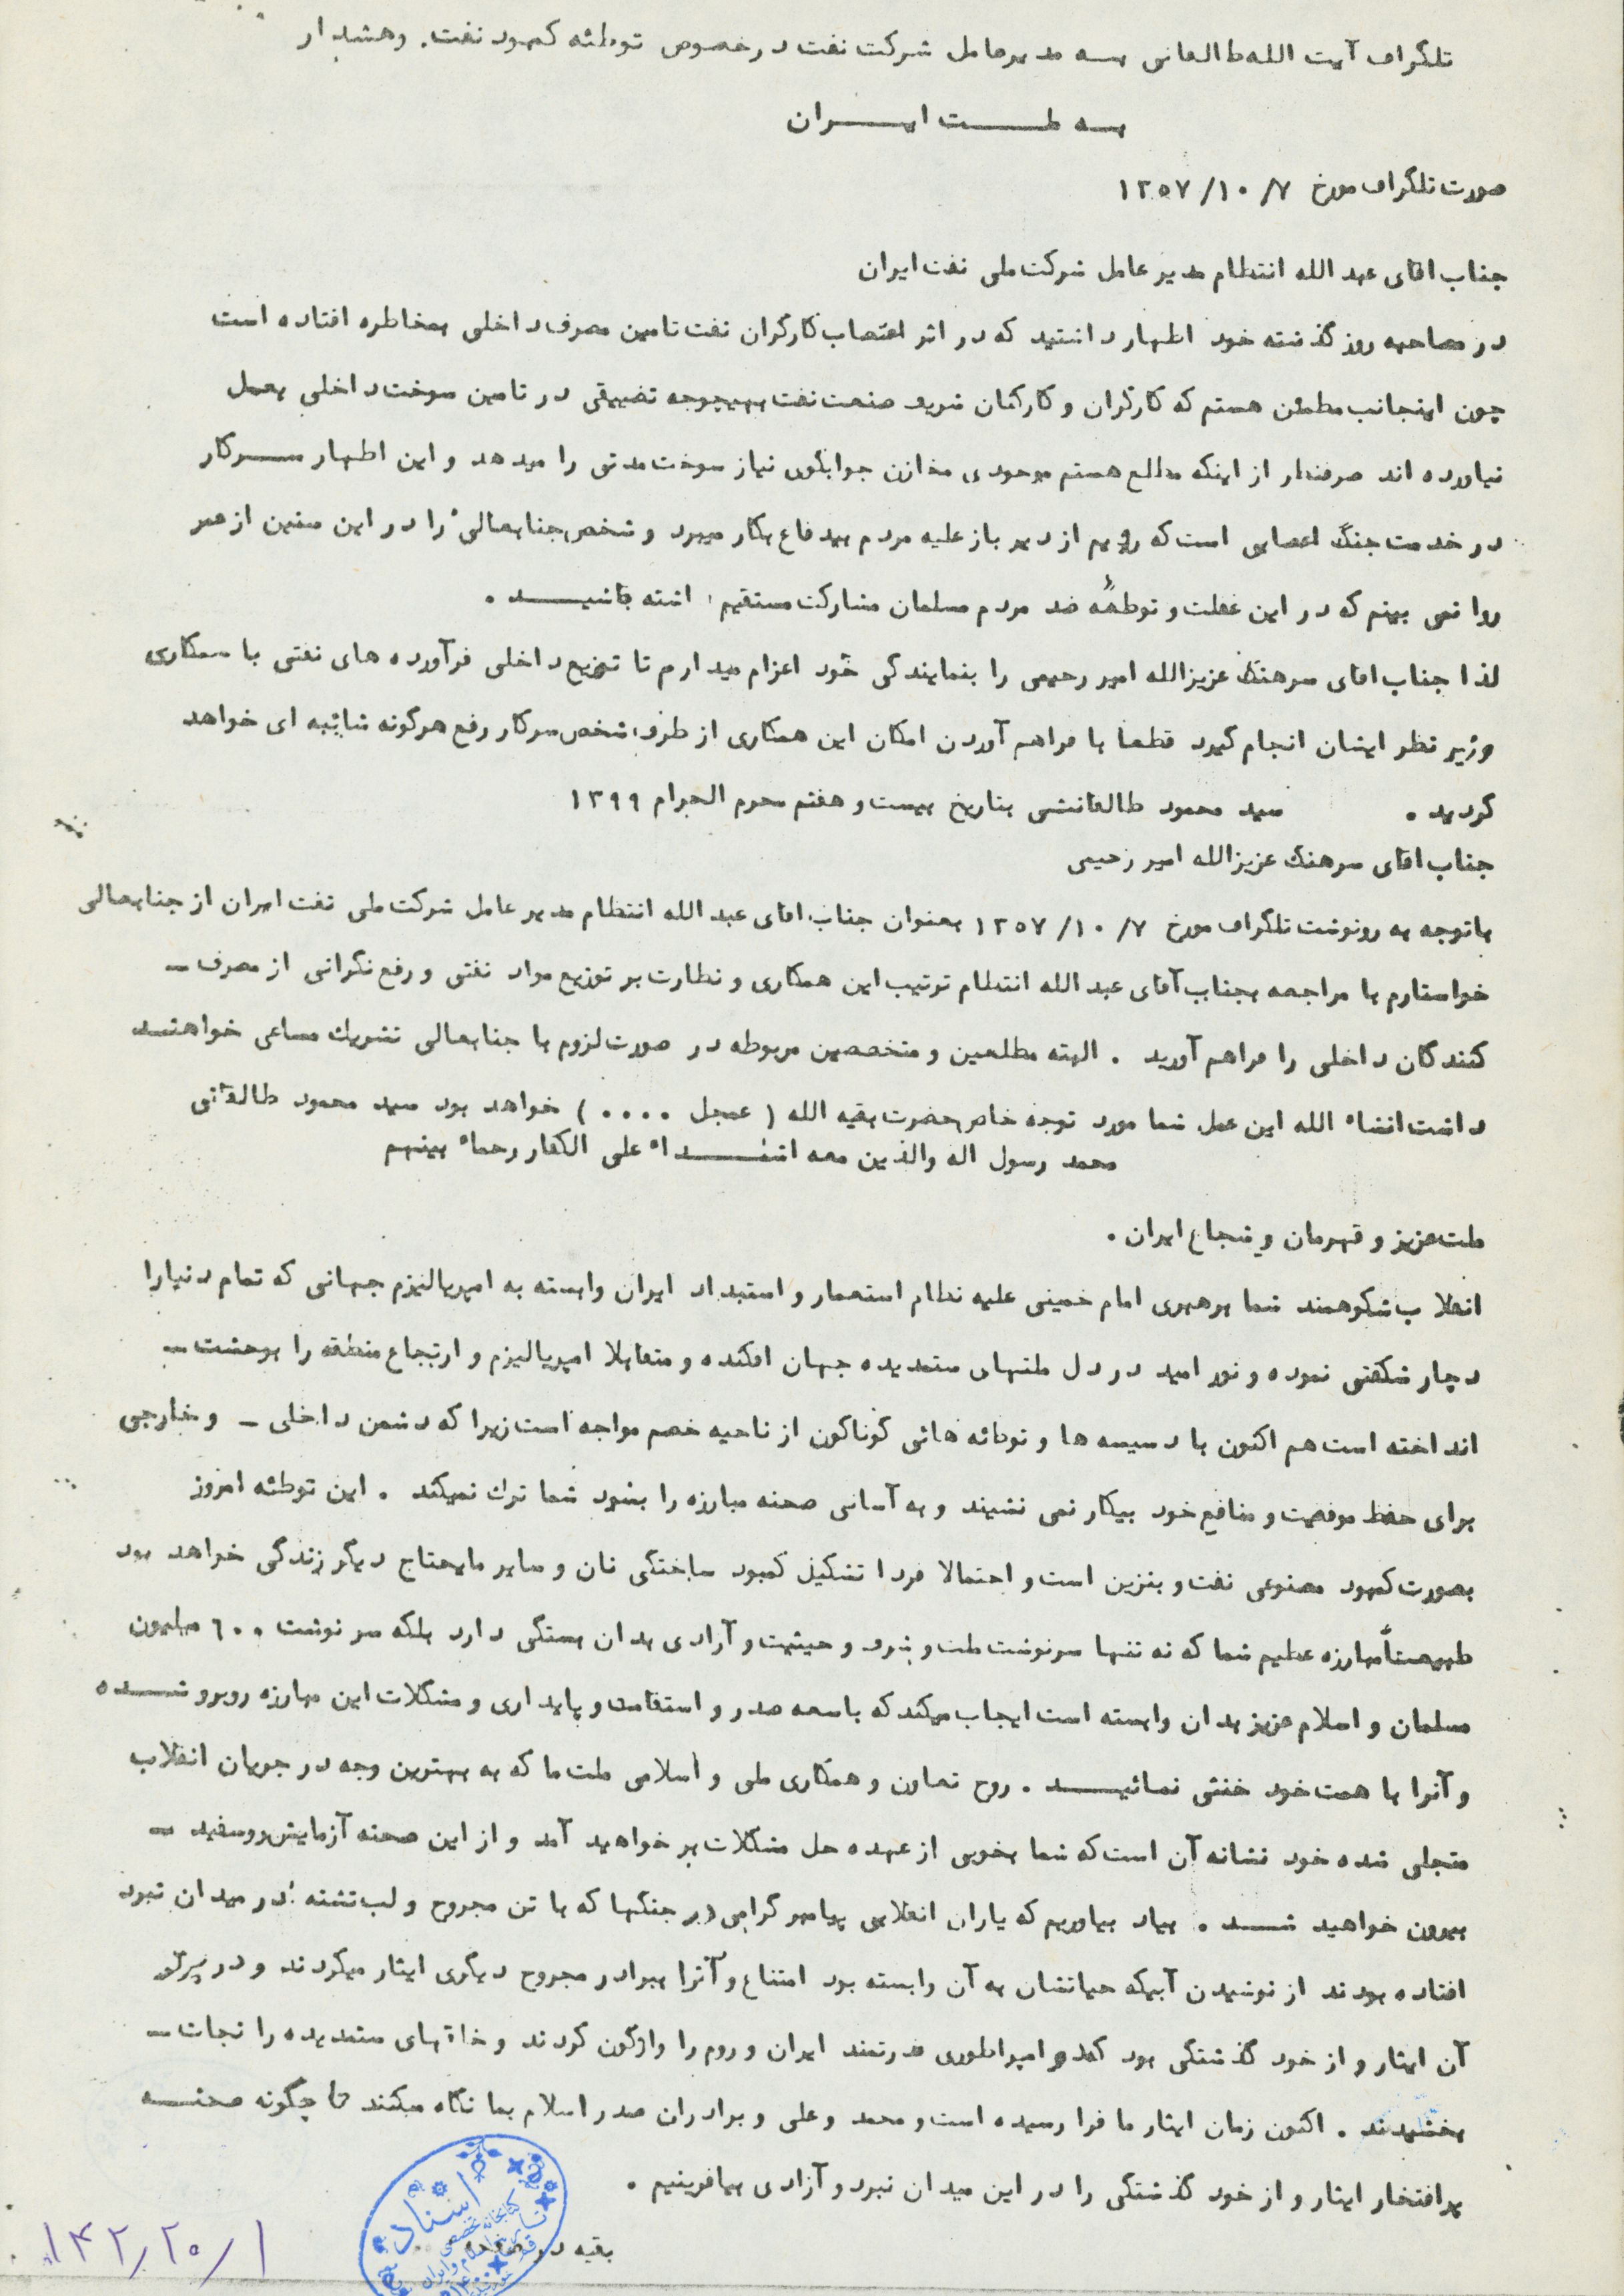 تلگراف آیت الله طالقانی بـه مدیرعامل شرکت نفت درخصوص توطئه کمبود نفت. وهشدار
بـه ملـت ایـران
صورت تلگراف مورخ ۱۳۵۷/۱۰/۷
جناب اقای عبد الله انتظام مدیر عامل شرکت ملی نفت ایران
در مصاحبه روز گذشته خود اظهار داشتید که در اثر اعتصاب کارگران نفت تامین مصرف داخلی بمخاطره افتاده است
چون اینجانب مطمئن هستم که کارگران و کارکنان شریف صنعت نفت بهیچوجه تضییقی در تامین سوخت داخلی بعمل
نیاورده اند صرفنظر از اینکه مطلع هستم موجودی مخازن جوابگوی نیاز سوخت مدتی را میدهد و این اظهار سـرکار
در خدمت جنگ اعصابی است که رژیم از دیر باز علیه مردم بیدفاع بکار میبرد و شخص جنابعالی را در این سنین از عمر
روا نمی بینم که در این غفلت و توطئه ضد مردم مسلمان مشارکت مستقیم داشته باشیـد .
لذا جناب اقای سرهنگ عزیزالله امیر رحیمی را بنمایندگی خود اعزام میدارم تا توزیع داخلی فرآورده های نفتی با همکاری
وزیر نظر ایشان انجام گیرد قطعا با فراهم آوردن امکان این همکاری از طرف شخص سرکار رفع هرگونه شائبه ای خواهد
گردید . سید محمود طالقانـی بتاریخ بیست و هفتم محرم الحرام ۱۳۹۹
جناب اقای سرهنگ عزیزالله امیر رحیمی
باتوجه به رونوشت تلگراف مورخ ۱۳۵۷/۱۰/۷ بعنوان جناب اقای عبد الله انتظام مدیر عامل شرکت ملی نفت ایران از جنابعالی
خواستارم با مراجعه بجناب آقای عبد الله انتظام ترتیب این همکاری و نظارت بر توزیع مواد نفتی و رفع نگرانی از مصرف ـ
کنندگان داخلی را فراهم آورید . البته مطلعین و متخصصین مربوطه در صورت لزوم با جنابعالی تشریك مساعی خواهنـد
داشت انشاء الله این عمل شما مورد توجه خاص حضرت بقیه الله ( عجل .... ) خواهد بود سید محمود طالقانی
محمد رسول اله والذین معه اشـداء علی الکفار رحماء بینهم
ملت عزیز و قهرمان و شجاع ایران .
انقلاب شکوهمند شما برهبری امام خمینی علیه نظام استعمار و استبداد ایران وابسته به امپریالیزم جهانی که تمام دنیارا
دچار شگفتی نموده و نور امید در دل ملتهای ستمدیده جهان افکنده و متقابلا امپریالیزم و ارتجاع منطقه را بوحشت ـ
انداخته است هم اکنون با دسیسه ها و توطئه هائی گوناگون از ناحیه خصم مواجه است زیرا که دشمن داخلی ـ و خارجی
برای حفظ موقعیت و منافع خود بیکار نمی نشیند و به آسانی صحنه مبارزه را بسود شما ترك نمیکند . این توطئه امروز
بصورت کمبود مصنوعی نفت و بنزین است و احتمالا فردا تشکیل کمبود ساختگی نان و سایر مایحتاج دیگر زندگی خواهد بود
طبیعتاً مبارزه عظیم شما که نه تنها سرنوشت ملت و شرف و حیثیت و آزادی بدان بستگی دارد بلکه سرنوشت ۶۰۰ میلیون
مسلمان و اسلام عزیز بدان وابسته است ایجاب میکند که باسعه صدر و استقامت و پایداری و مشکلات این مبارزه روبرو شـده
و آنرا با همت خود خنثی نمائیـد . روح تعاون و همکاری ملی و اسلامی ملت ما که به بهترین وجه در جریان انقلاب
متجلی شده خود نشانه آن است که شما بخوبی از عهده حل مشکلات بر خواهید آمد و از این صحنه آزمایش روسفید ـ
بیرون خواهید شـد . بیاد بیاوریم که یاران انقلابی پیامبر گرامی در جنگها که با تن مجروح و لب تشنه در میدان نبرد
افتاده بودند از نوشیدن آبیکه حیاتشان به آن وابسته بود امتناع و آنرا ببرادر مجروح دیگری ایثار میکردند و در پرتو
آن ایثار و از خود گذشتگی بود که دو امپراطوری قدرتمند ایران و روم را واژگون کردند و خلقهای ستمدیده را نجات ـ
بخشیدند . اکنون زمان ایثار ما فرا رسیده است و محمد و علی و برادران صدر اسلام بما نگاه میکنند تا چگونه صحنـه
پرافتخار ایثار و از خود گذشتگی را در این میدان نبرد و آزادی بیافرینیم .
بقیه در صفحه
اسناد
کتابخانه تخصصی
۱۴۲٫۲۰/۱